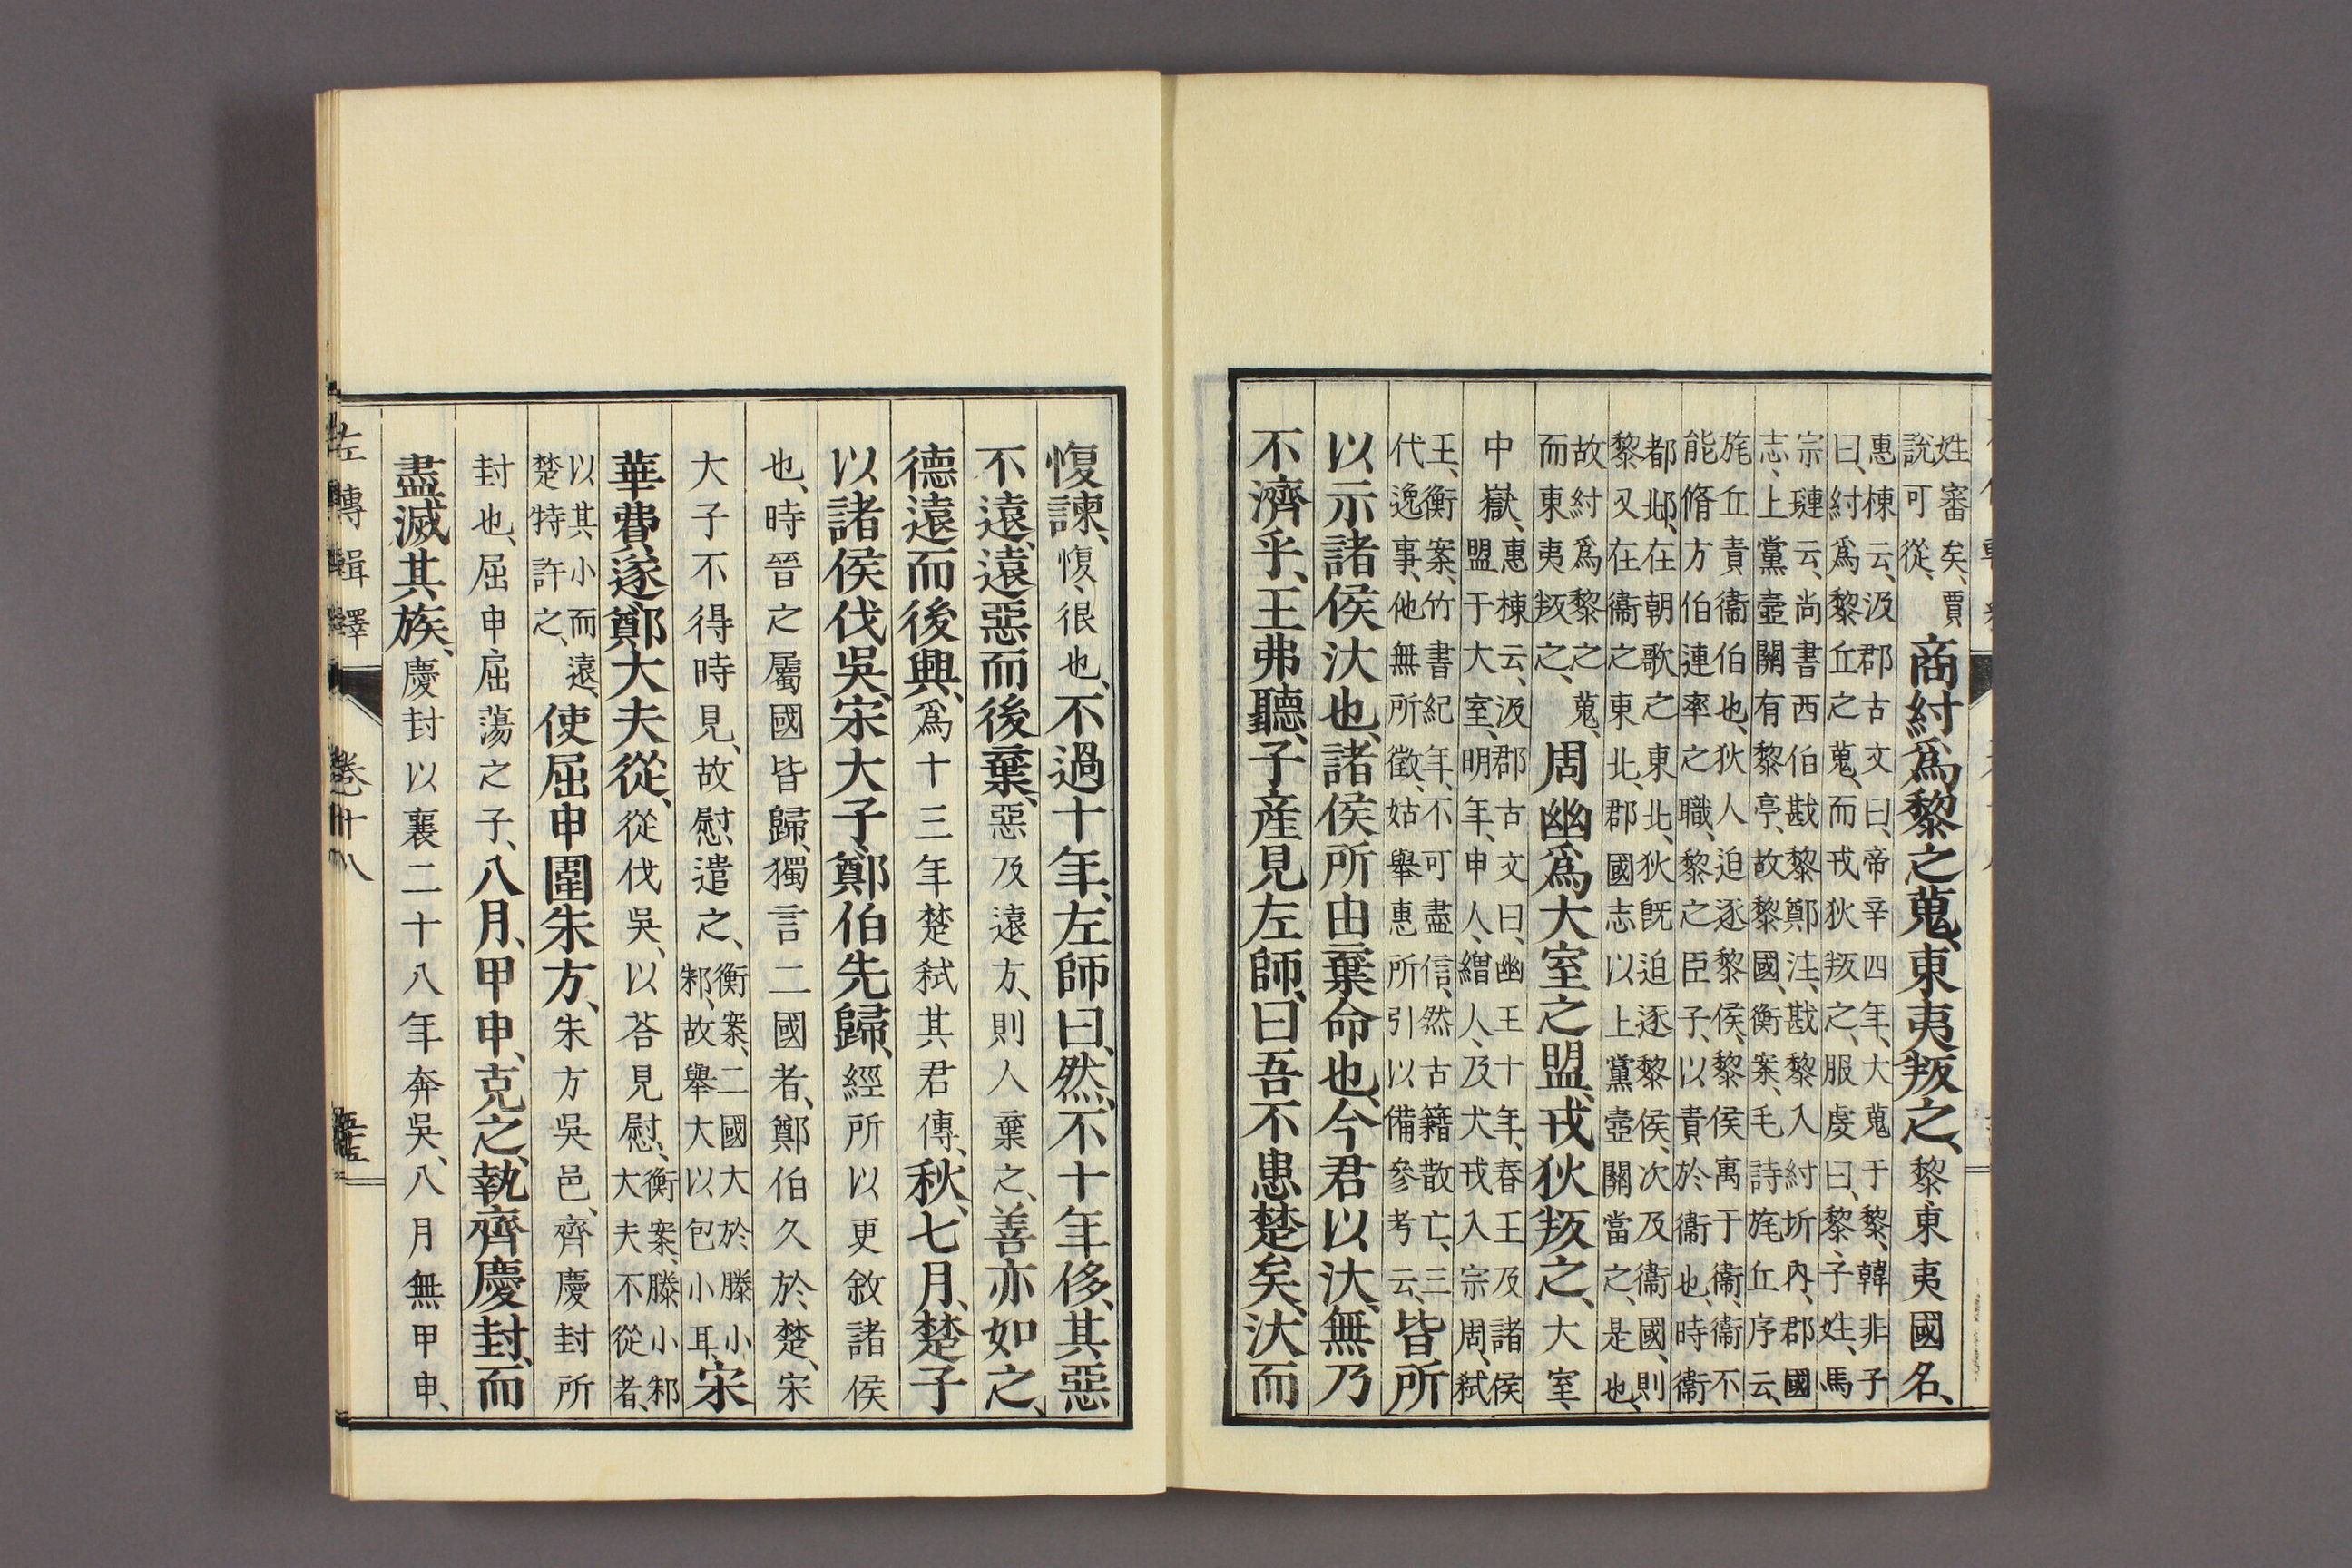 姓審矣、賈
說可從、
商紂爲黎之蒐、東夷叛之、黎東夷國名、
惠棟云、汲郡古文曰、帝辛四年、大蒐于黎、韓非子
曰、紂爲黎丘之蒐、而戎狄叛之、服虔曰、黎、子姓、馬
宗璉云、尚書西伯戡黎鄭注、戡黎入紂圻內、郡國
志、上黨壺關有黎亭、故黎國、衡案、毛詩旄丘序云、
旄丘責衞伯也、狄人迫逐黎侯、黎侯寓于衞、衞不
能脩方伯連率之職、黎之臣子、以責於衞也、時衞
都邶、在朝歌之東北、狄旣迫逐黎侯、次及衞國、則
黎又在衞之東北、郡國志以上黨壺關當之、是也、
故紂爲黎之蒐、
而東夷叛之、
周幽爲大室之盟、戎狄叛之、大室、
中嶽、
惠棟云、汲郡古文曰、幽王十年、春王及諸侯
盟于大室、明年、申人、繒人、及犬戎入宗周、弒
王、衡案、竹書紀年、不可盡信、然古籍散亡、三
代逸事、他無所徵、姑舉惠所引以備參考云、
皆所
以示諸侯汏也、諸侯所由棄命也、今君以汏、無乃
不濟乎、王弗聽、子産見左師、曰吾不患楚矣、汏而
愎諫、愎、很也、不過十年、左師曰、然、不十年侈、其惡
不遠、遠惡而後棄、惡及遠方、則人棄之、善亦如之、
德遠而後興、爲十三年楚弒其君傳、秋、七月、楚子
以諸侯伐吳、宋大子、鄭伯先歸、經所以更敘諸侯
也、時晉之屬國皆歸、獨言二國者、鄭伯久於楚、宋
大子不得時見、故慰遣之、
衡案、二國大於滕小
邾、故舉大以包小耳、
宋
華費遂、鄭大夫從、從伐吳、以荅見慰、
衡案、滕小邾
大夫不從者、
以其小而遠、
楚特許之、
使屈申圍朱方、朱方吳邑、齊慶封所
封也、屈申、屈蕩之子、八月、甲申、克之、執齊慶封、而
盡滅其族、慶封以襄二十八年奔吳、八月無甲申、
左傳輯釋
卷十八